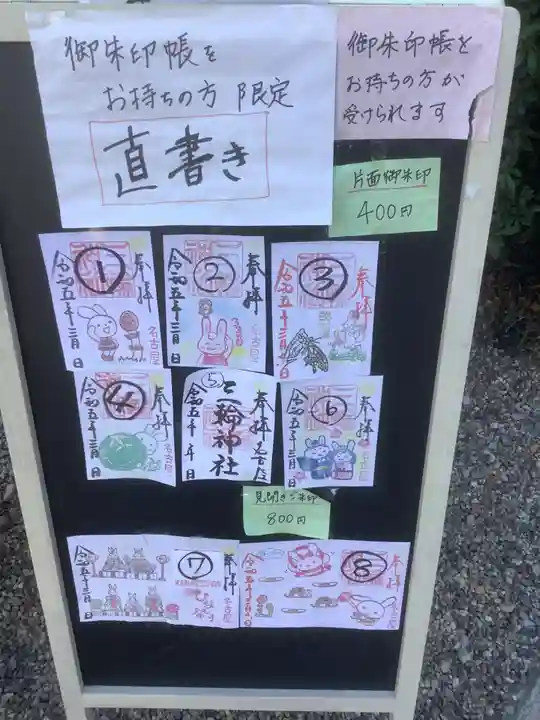 御朱印帳を
お持ちの方 限定
直書き
御朱印帳を
お持ちの方が
受けられます
片面御朱印
400円
① 奉拝
令和五年三月 日
名古屋
② 奉拝
令和五年三月 日
名古屋
③ 奉拝
令和五年三月 日
④ 奉拝
令和五年三月 日
名古屋
⑤ 奉拝
三輪神社
令和五年 年 日
名古屋
⑥ 奉拝
令和五年三月 日
名古屋
見開き御朱印
800円
⑦ 奉拝
令和五年三月 日
名古屋
⑧ 奉拝
令和五年三月 日
名古屋